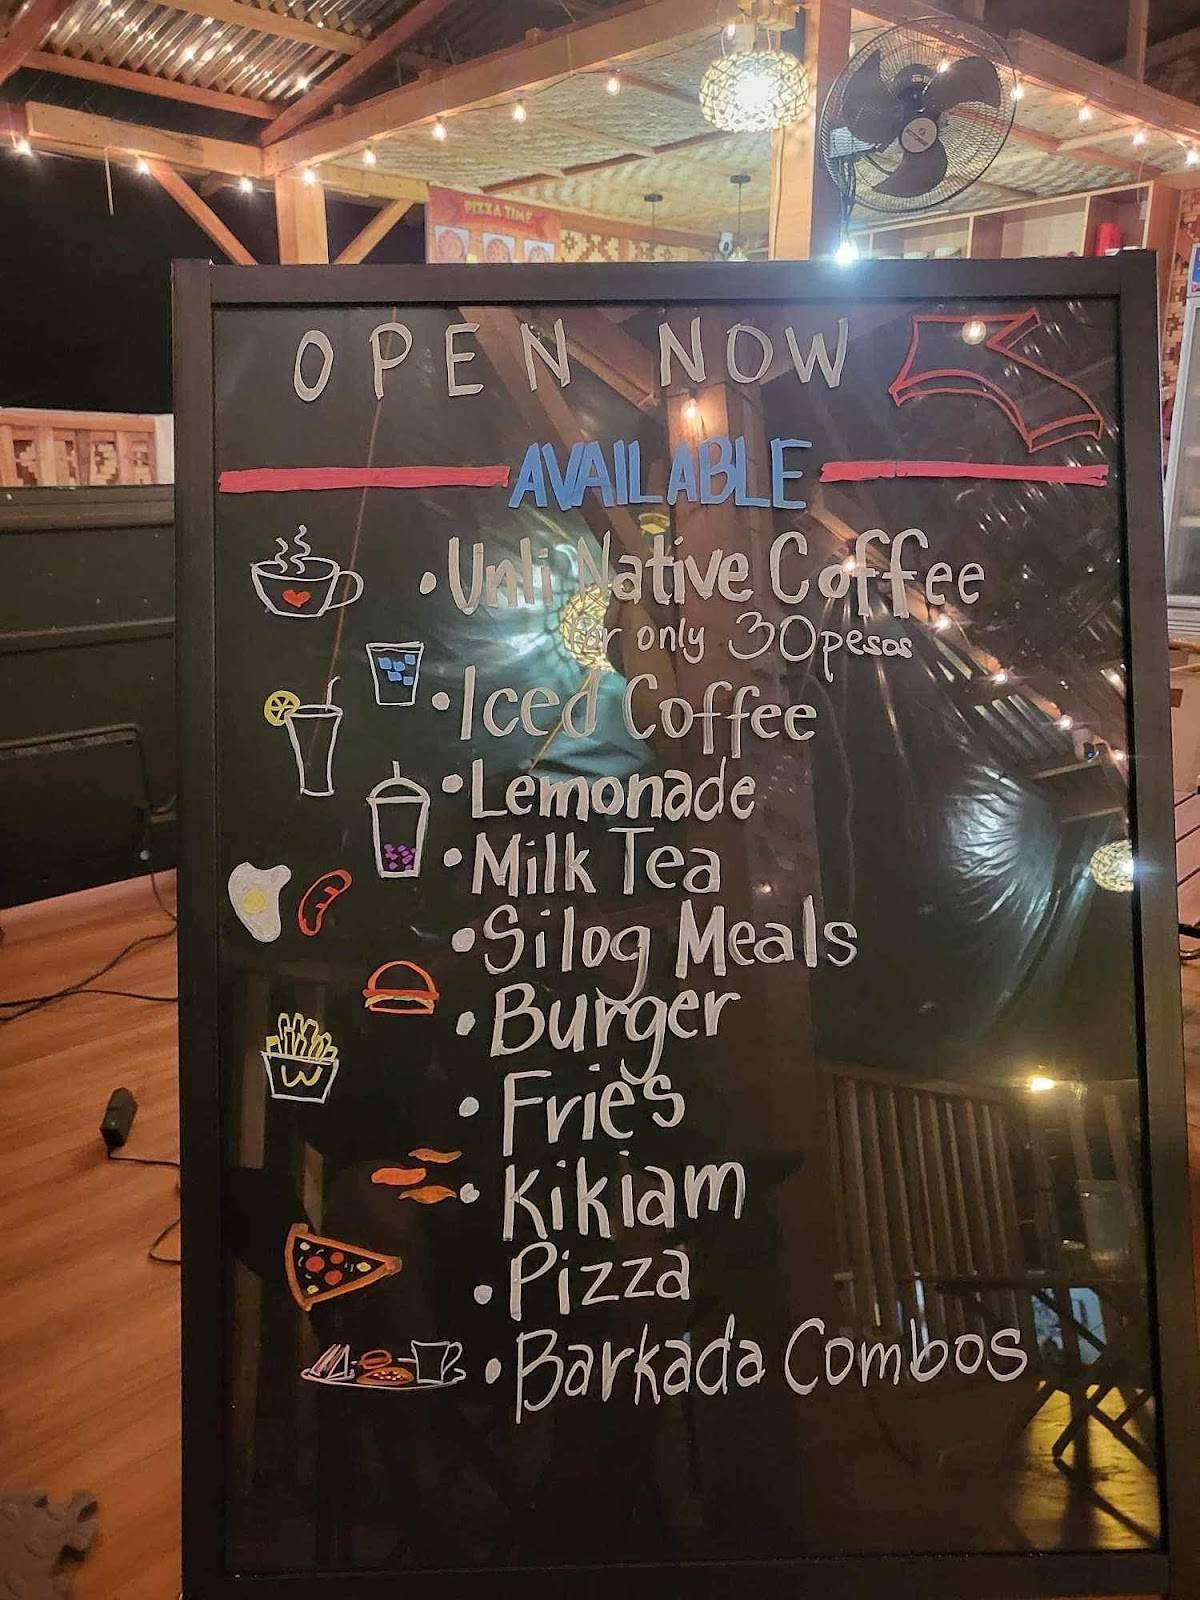 PIZZA TIME
OPEN NOW
AVAILABLE
• Unli Native Coffee
for only 30 pesos
• Iced Coffee
• Lemonade
• Milk Tea
• Silog Meals
• Burger
• Fries
• Kikiam
• Pizza
• Barkada Combos